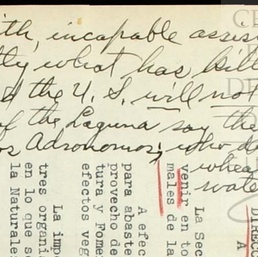 ith, incapable assis
tly what has kill
d the U. S. will not
of the Laguna say the
os Adronomos, who de
whea
wate
La Sec
venir en to
males de la
A efec
para abaste
provecho de
tura y Fomen
efectos veg
La imp
tres organi
en lo que se
la Naturale